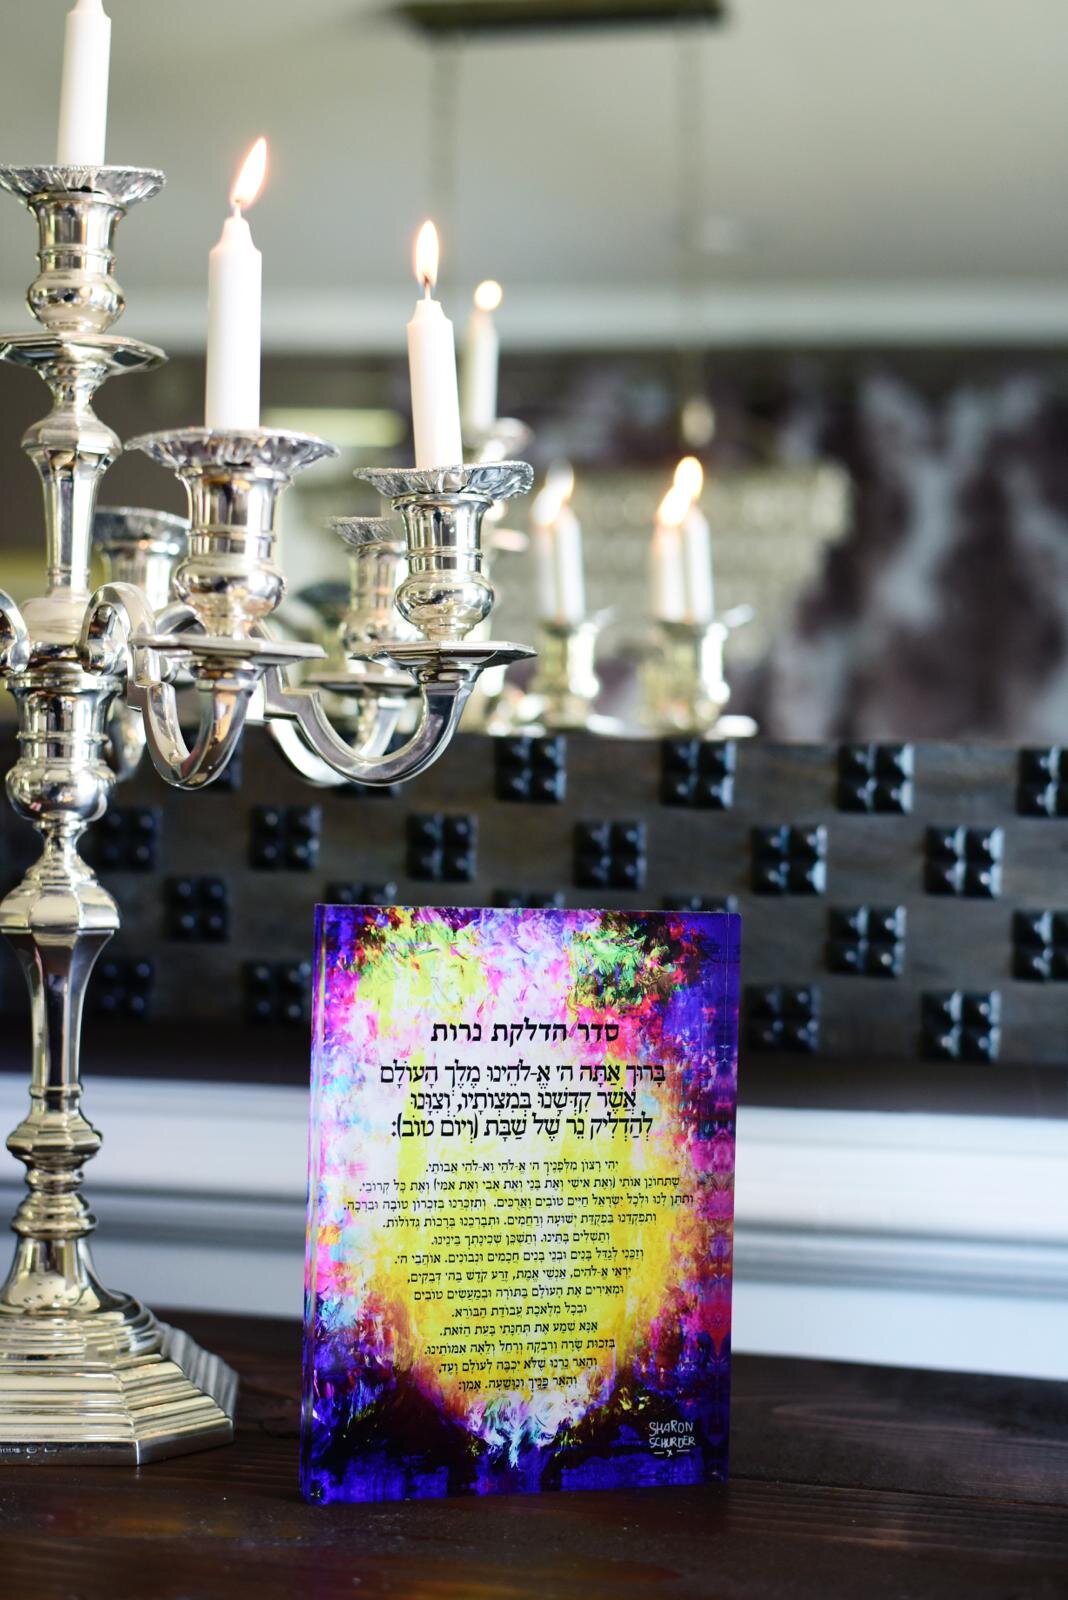 סדר הדלקת נרות
בָּרוּךְ אַתָּה ה' אֱ-לֹהֵינוּ מֶלֶךְ הָעוֹלָם
אֲשֶׁר קִדְּשָׁנוּ בְּמִצְוֹתָיו, וְצִוָּנוּ
לְהַדְלִיק נֵר שֶׁל שַׁבָּת (וְיוֹם טוֹב):
יְהִי רָצוֹן מִלְּפָנֶיךָ ה' אֱ-לֹהַי וֵא-לֹהֵי אֲבוֹתַי.
שֶׁתְּחוֹנֵן אוֹתִי (וְאֶת אִישִׁי וְאֶת בָּנַי וְאֶת אָבִי וְאֶת אִמִּי) וְאֶת כָּל קְרוֹבַי.
וְתִתֵּן לָנוּ וּלְכָל יִשְׂרָאֵל חַיִּים טוֹבִים וַאֲרֻכִּים. וְתִזְכְּרֵנוּ בְּזִכְרוֹן טוֹבָה וּבְרָכָה.
וְתִפְקְדֵנוּ בִּפְקֻדַּת יְשׁוּעָה וְרַחֲמִים. וּתְבָרְכֵנוּ בְּרָכוֹת גְּדוֹלוֹת.
וְתַשְׁלִים בָּתֵּינוּ. וְתַשְׁכֵּן שְׁכִינָתְךָ בֵּינֵינוּ.
וְזַכֵּנִי לְגַדֵּל בָּנִים וּבְנֵי בָנִים חֲכָמִים וּנְבוֹנִים. אוֹהֲבֵי ה'.
יִרְאֵי אֱ-לֹהִים, אַנְשֵׁי אֱמֶת, זֶרַע קֹדֶשׁ בַּה' דְּבֵקִים,
וּמְאִירִים אֶת הָעוֹלָם בַּתּוֹרָה וּבְמַעֲשִׂים טוֹבִים
וּבְכָל מְלֶאכֶת עֲבוֹדַת הַבּוֹרֵא.
אָנָּא שְׁמַע אֶת תְּחִנָּתִי בָּעֵת הַזֹּאת.
בִּזְכוּת שָׂרָה וְרִבְקָה וְרָחֵל וְלֵאָה אִמּוֹתֵינוּ.
וְהָאֵר נֵרֵנוּ שֶׁלֹּא יִכְבֶּה לְעוֹלָם וָעֶד,
וְהָאֵר פָּנֶיךָ וְנִוָּשֵׁעָה. אָמֵן:
SHARON
SCHURDER